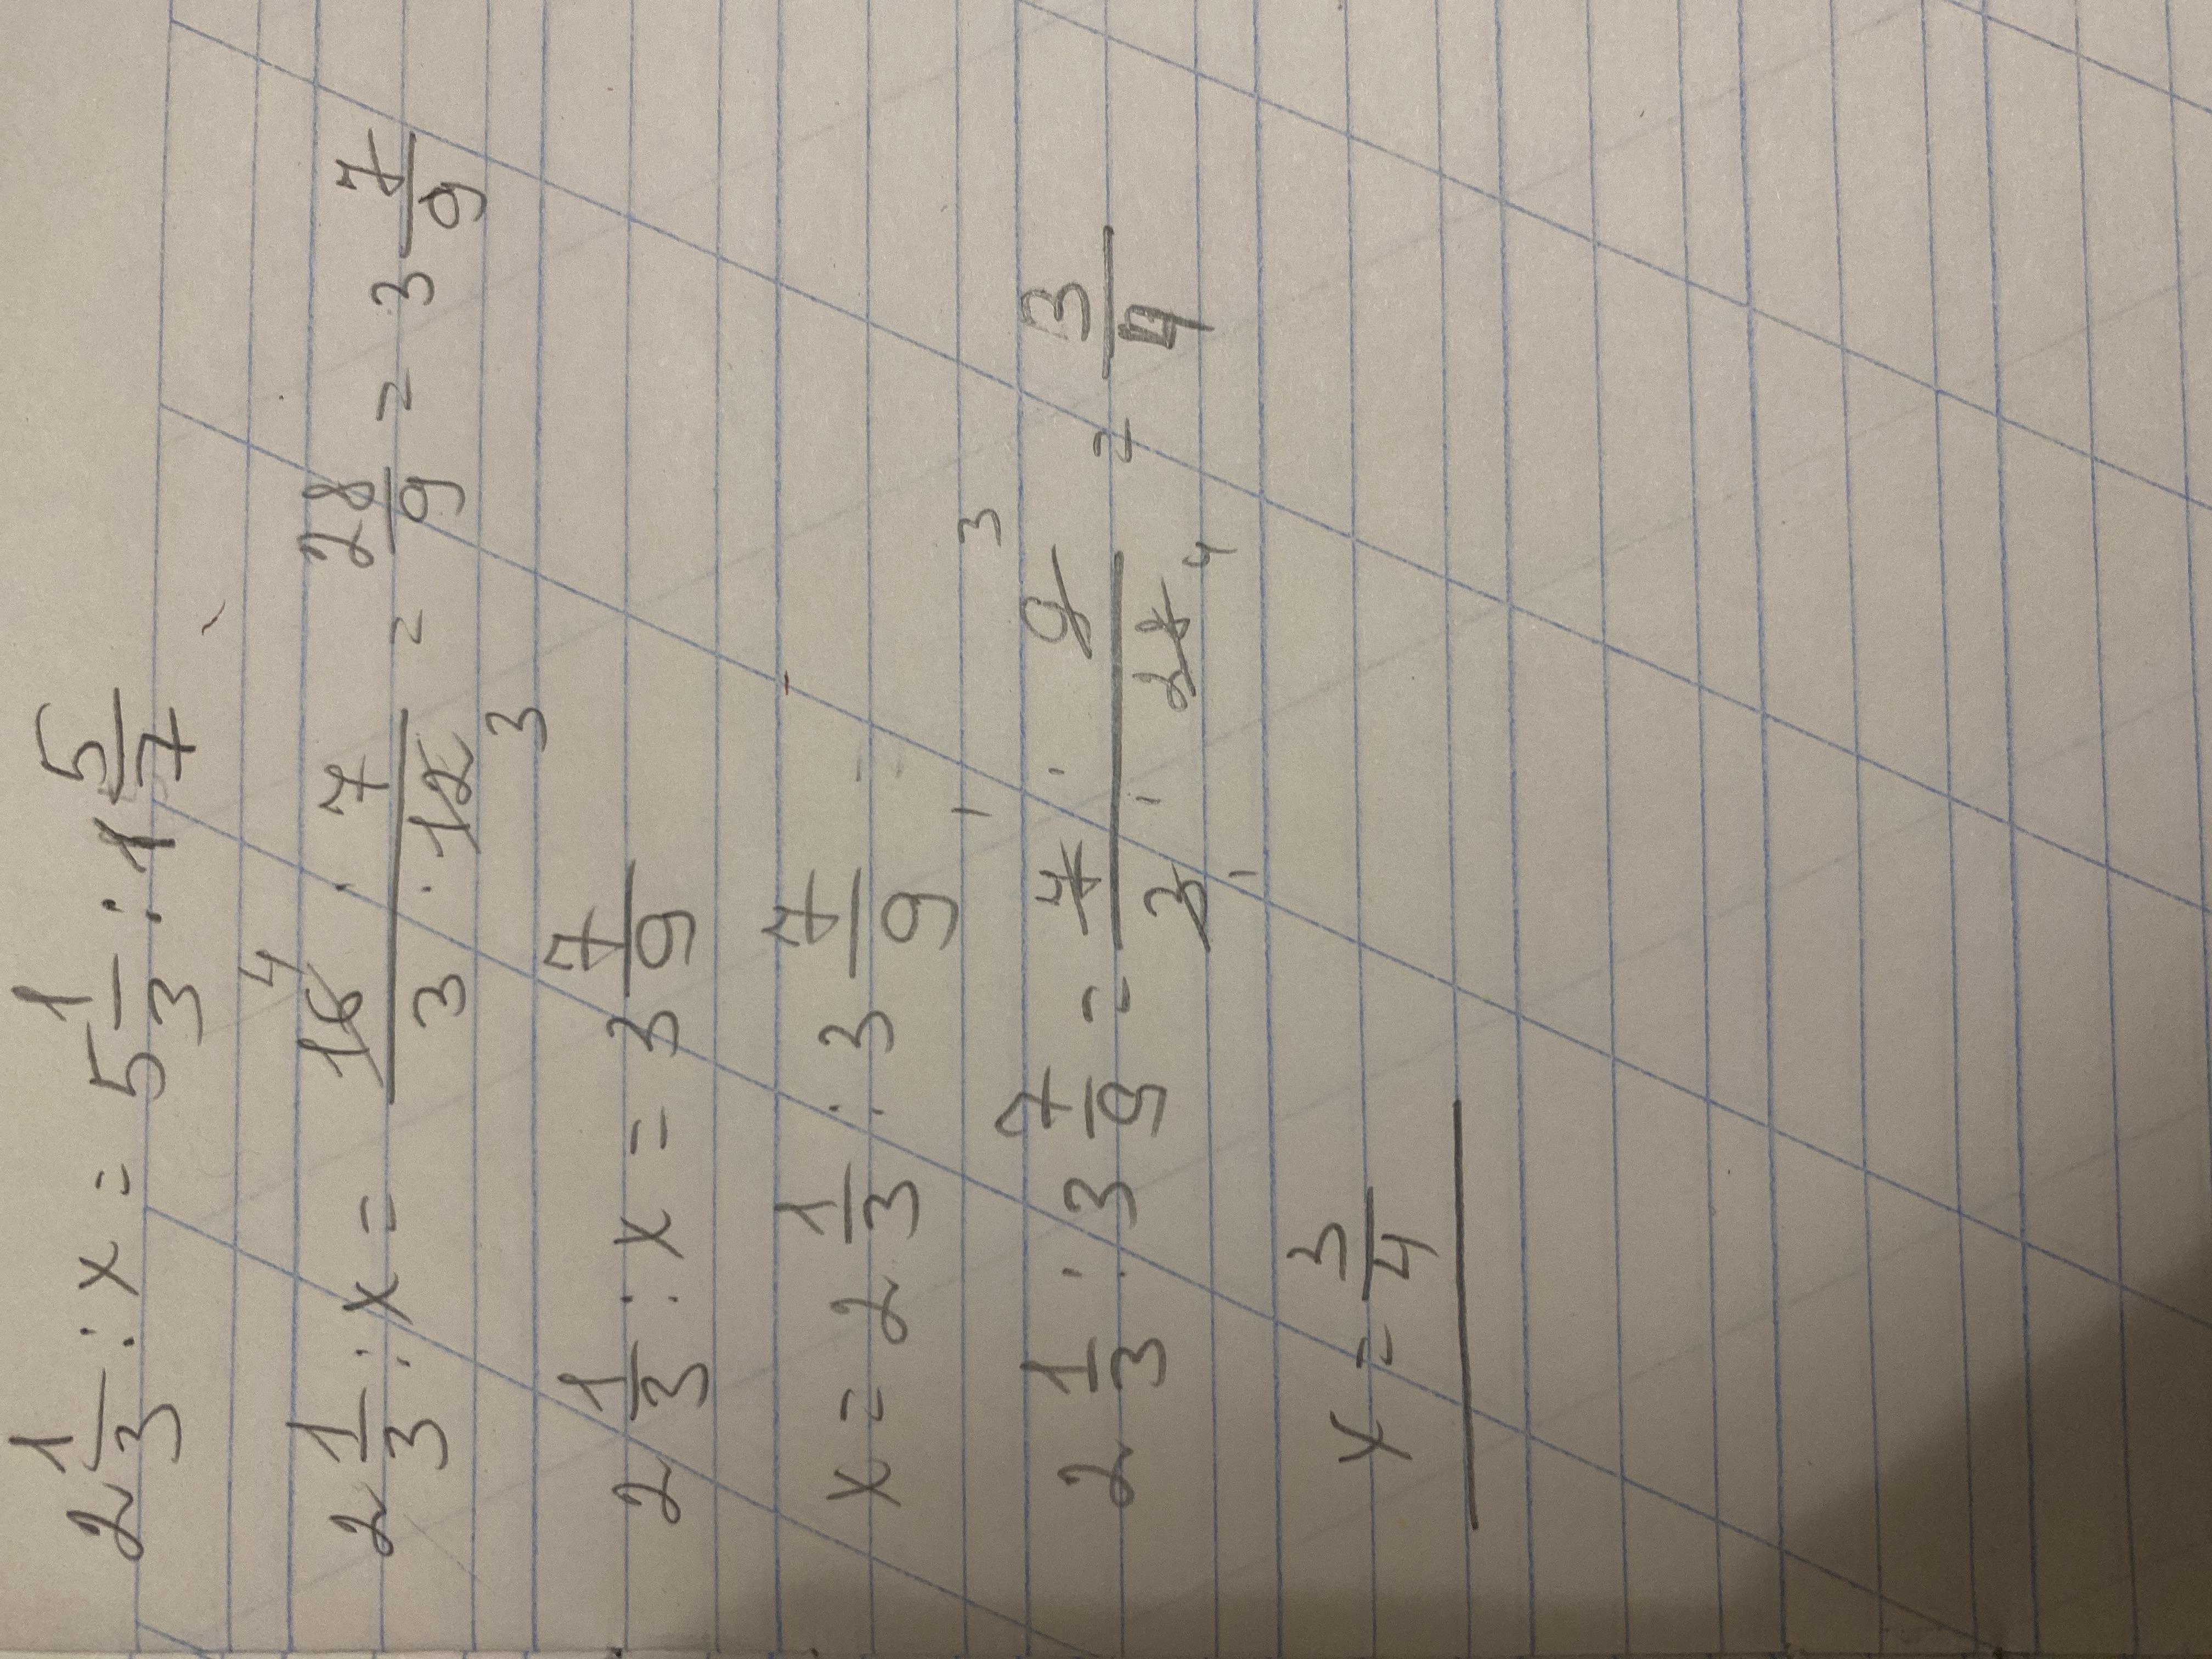 2 1/3 : x = 5 1/3 : 1 5/7
2 1/3 : x = 16 4 · 7 / 3 · 12 3 = 28/9 = 3 7/9
2 1/3 : x = 3 7/9
x = 2 1/3 : 3 7/9
2 1/3 : 3 7/9 = 7 1 · 9 3 / 3 1 · 28 4 = 3/4
x = 3/4